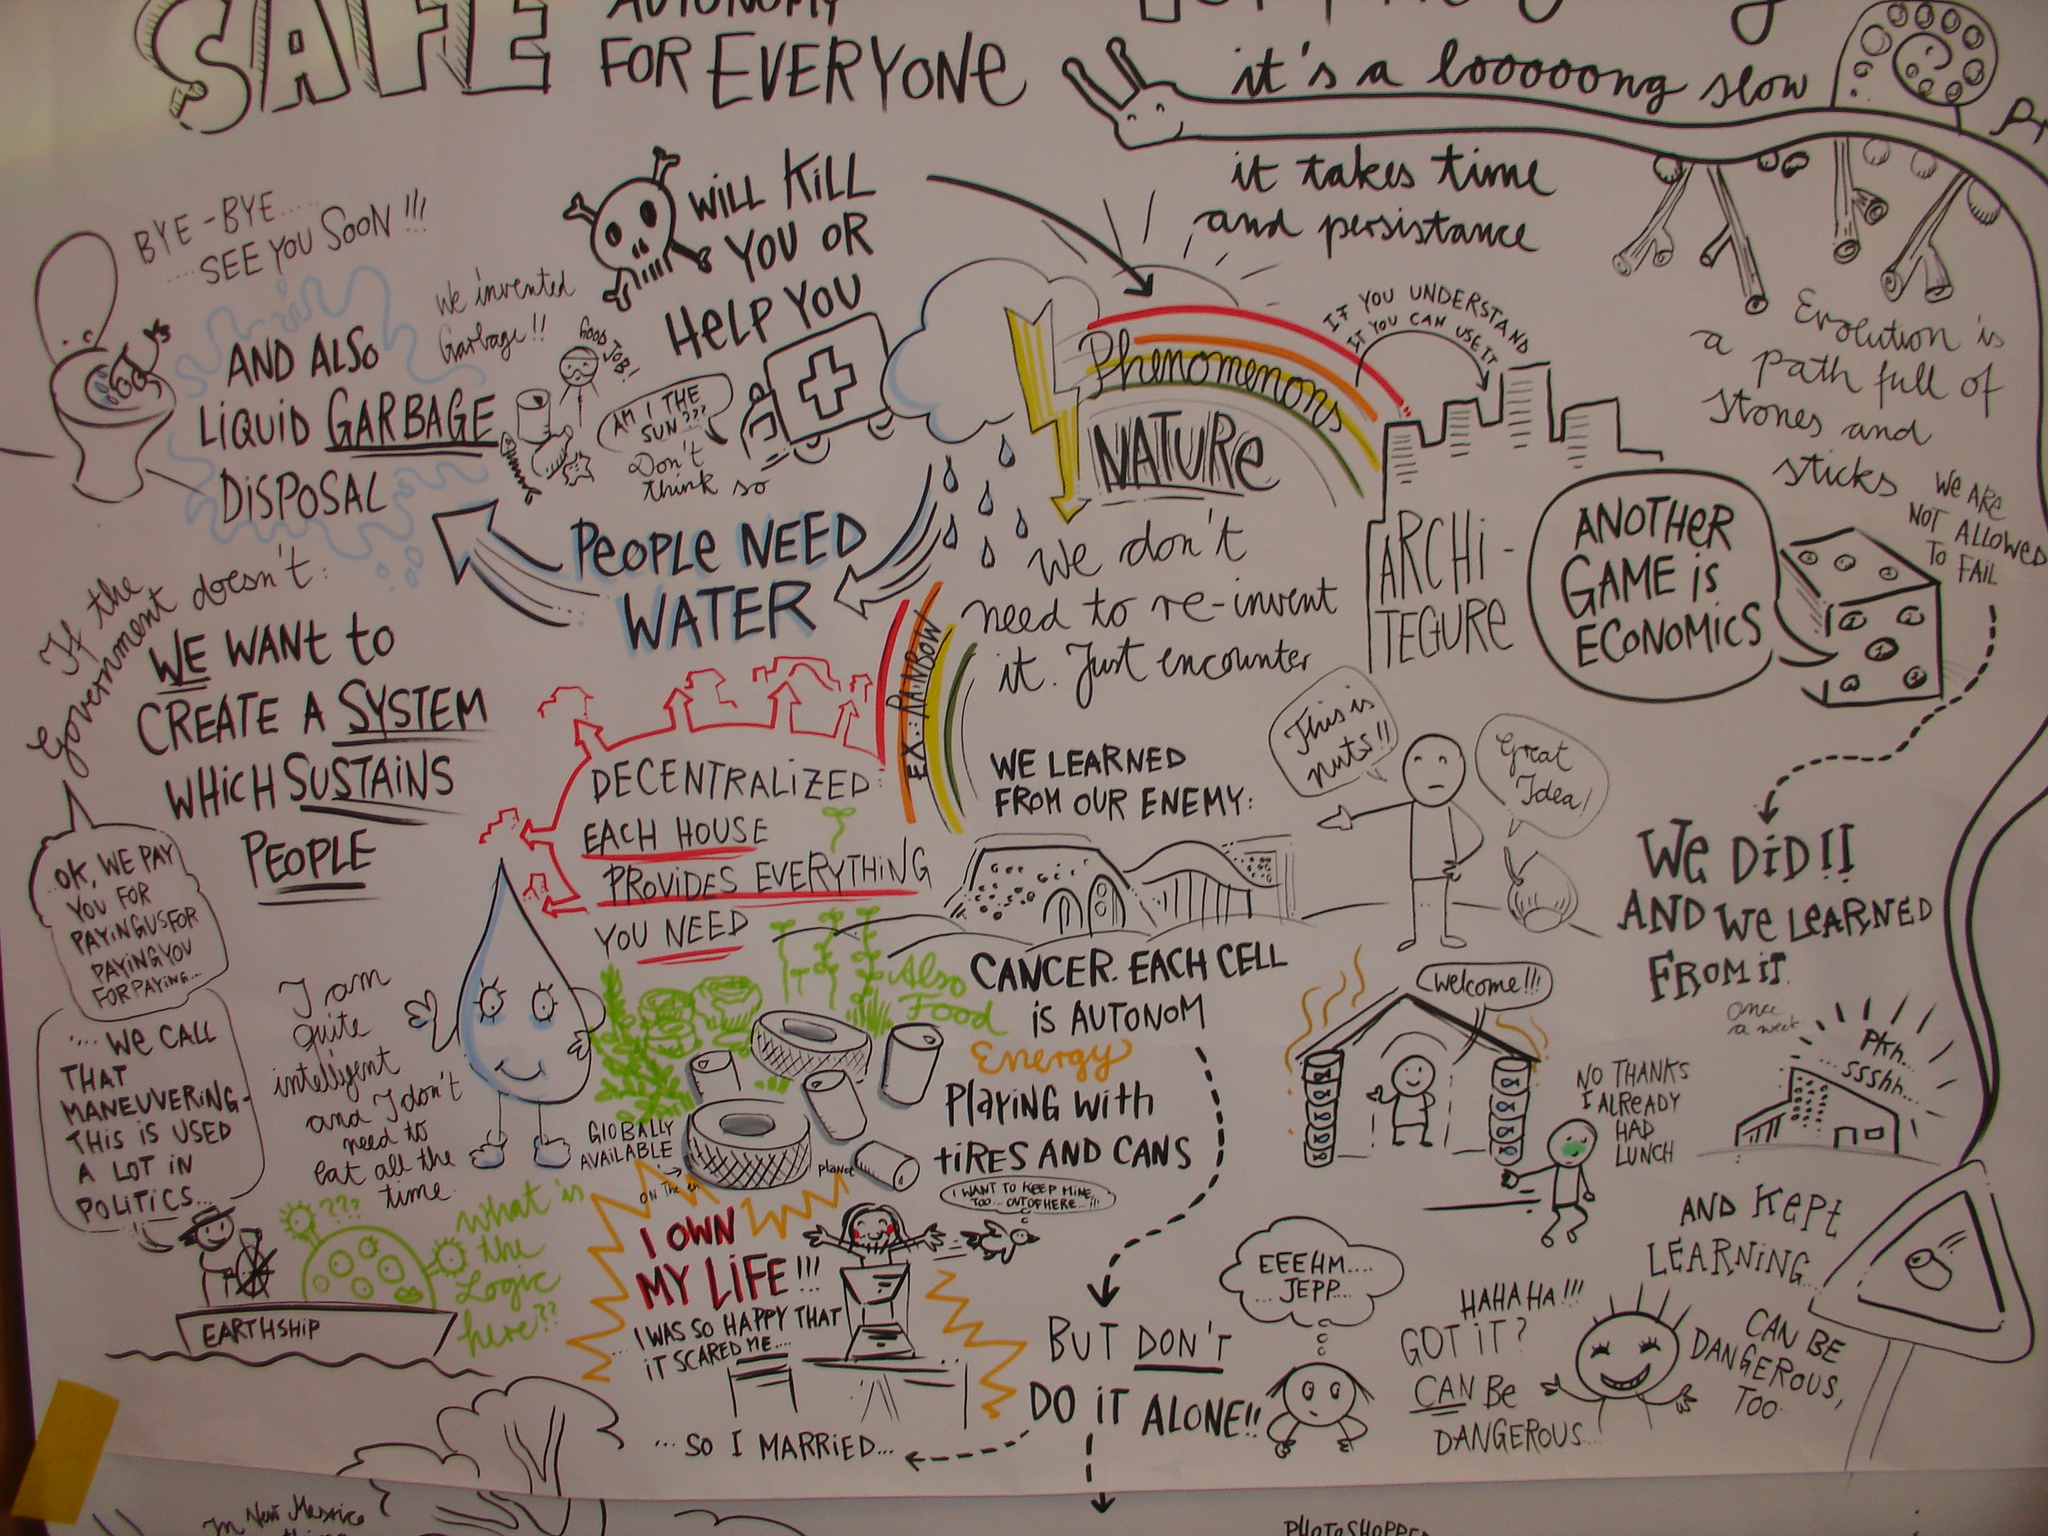 SAFE
AUTONOMY
FOR EVERYONE
it's a looooong slow
it takes time
and persistance
BYE-BYE.....
....SEE YOU SOON!!!
AND ALSO
LIQUID GARBAGE
DISPOSAL
We invented
Garbage!!
GOOD
JOB!
WILL KILL
YOU OR
HELP YOU
AM I THE
SUN???
Don't
think so
Phenomenons
NATURE
IF YOU UNDERSTAND
IT YOU CAN USE IT
ARCHI-
TEGURE
Evolution is
a path full of
stones and
sticks
WE ARE
NOT ALLOWED
TO FAIL
ANOTHER
GAME IS
ECONOMICS
PEOPLE NEED
WATER
We don't
need to re-invent
it. Just encounter
EX.: RAINBOW
If the
Government doesn't:
WE WANT to
CREATE A SYSTEM
WHICH SUSTAINS
PEOPLE
OK, WE PAY
YOU FOR
PAYING US FOR
PAYING YOU
FOR PAYING...
.... WE CALL
THAT
MANEUVERING-
THIS IS USED
A LOT IN
POLITICS...
EARTHSHIP
DECENTRALIZED:
EACH HOUSE
PROVIDES EVERYTHING
YOU NEED
I am
quite
intelligent
and I don't
need to
eat all the
time.
???
What is
the
Logic
here??
Also
Food
WE LEARNED
FROM OUR ENEMY:
CANCER. EACH CELL
IS AUTONOM
Energy
PLAYING WITH
TIRES AND CANS
GLOBALLY
AVAILABLE
ON THE
planet
I OWN
MY LIFE!!!
I WAS SO HAPPY THAT
IT SCARED ME....
I WANT TO KEEP MINE,
TOO... OUT OF HERE...!!!
...SO I MARRIED...
BUT DON'T
DO IT ALONE!!
This is
nuts!!
Great
Idea!
WE DID!!
AND WE LEARNED
FROM IT.
once
a week
Welcome!!!
NO THANKS
I ALREADY
HAD
LUNCH
Pkh...
...SSShh...
AND KEPT
LEARNING...
EEEHM....
...JEPP...
HAHAHA!!!
GOT IT?
CAN BE
DANGEROUS...
CAN BE
DANGEROUS,
TOO.
In New Mexico